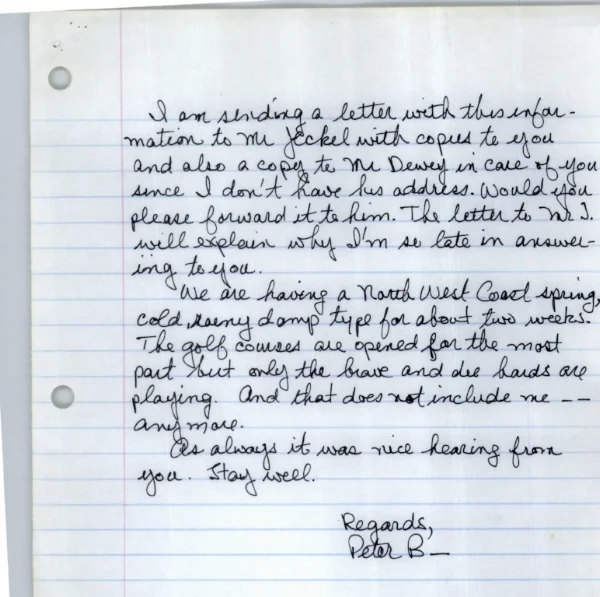 I am sending a letter with this infor-
mation to Mr Jeckel with copies to you
and also a copy to Mr Dewey in care of you
since I don't have his address. Would you
please forward it to him. The letter to Mr J.
will explain why I'm so late in answer-
ing to you.
We are having a North West Coast spring,
cold, rainy damp type for about two weeks.
The golf courses are opened for the most
part but only the brave and die hards are
playing. And that does not include me --
any more.
As always it was nice hearing from
you. Stay well.
Regards,
Peter B—